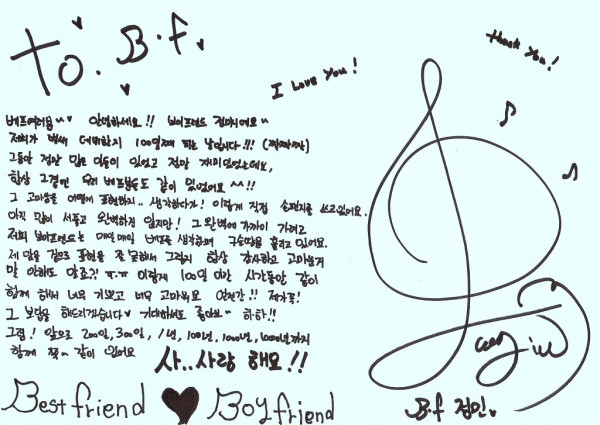 To. B.f.
I Love You!
Thank You!
베프여러분~♥ 안녕하세요!! 보이프렌드 정민이에요~
저희가 벌써 데뷔한지 100일째 되는 날입니다!!! (짝짝짝)
그동안 정말 많은 일들이 있었고 정말 재미있었는데요,
항상 그곁엔 우리 베프분들도 같이 있었어요 ^^!!
그 고마움을 어떻게 표현하지.. 생각하다가! 이렇게 직접 손편지를 쓰고있어요.
아직 많이 서툴고 완벽하진 않지만! 그 완벽에 가까이 가려고
저희 보이프렌드는 매일매일 베프를 생각하며 구슬땀을 흘리고 있어요.
제 맘을 겉으로 표현을 잘 못해서 그렇지 항상 감사하고 고마운거
말 안해도 알죠?! ㅠ.ㅠ 이렇게 100일 이란 시간동안 같이
함께 해서 너무 기쁘고 너무 고마워요
그 보답을 해드리겠습니다♥ 기대하셔도 좋아요~ 하.하!!
그럼! 앞으로 200일, 300일, 1년, 100년, 1000년, 10000년까지
함께 쭉~ 같이 있어요 사..사랑 해요!!
Bestfriend ♥ Boyfriend
B.f 정민♥